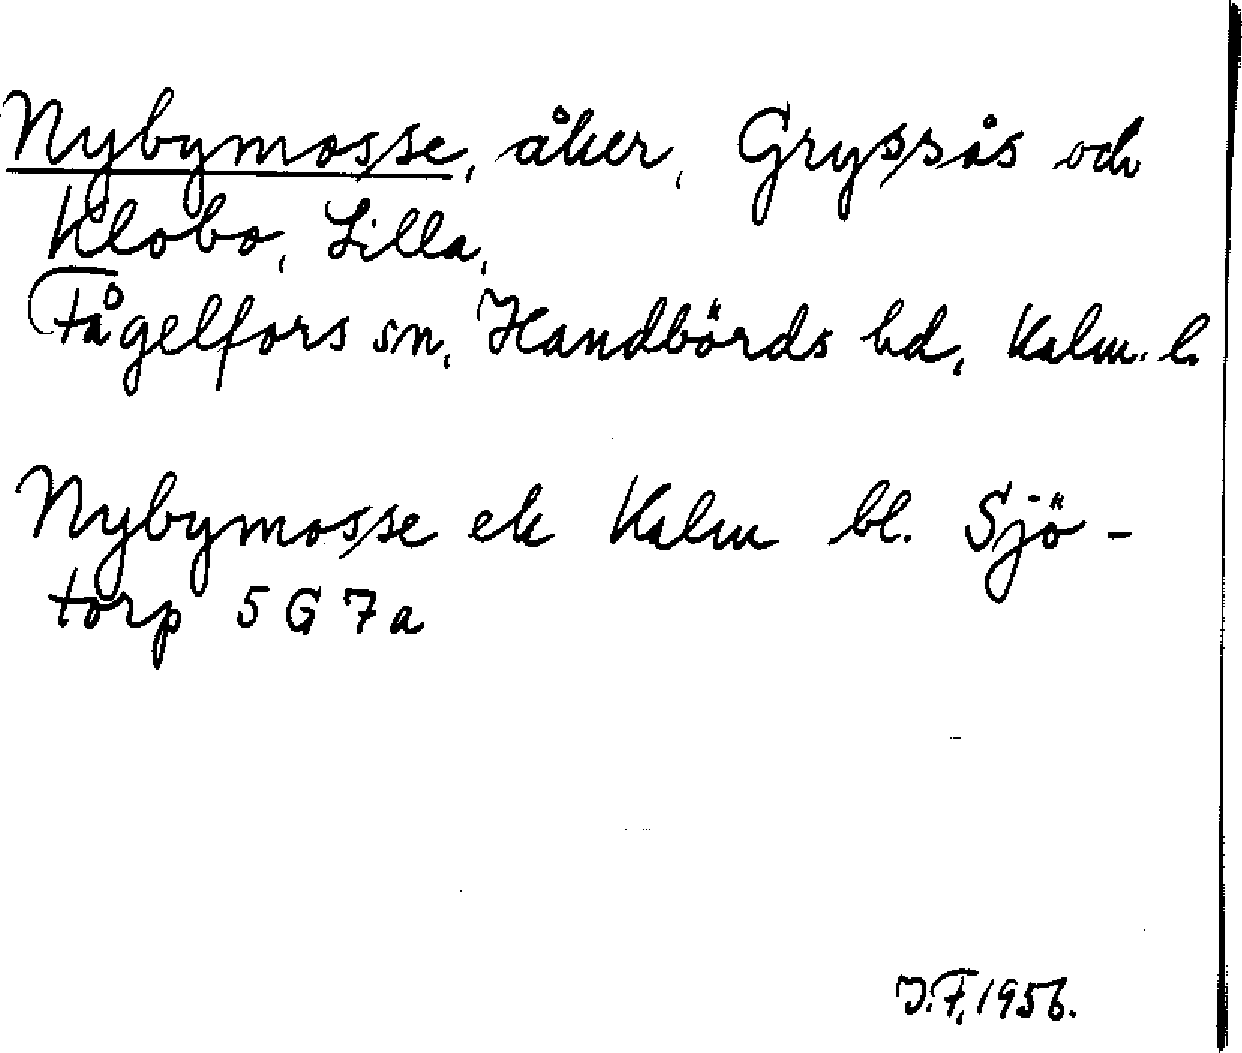 Nybymosse, åker, Gryssås och
Klobo, Lilla,
Fågelfors sn, Handbörds hd, Kalm. l.
Nybymosse ek Kalm bl. Sjö-
torp 5 G 7 a
J.F. 1956.